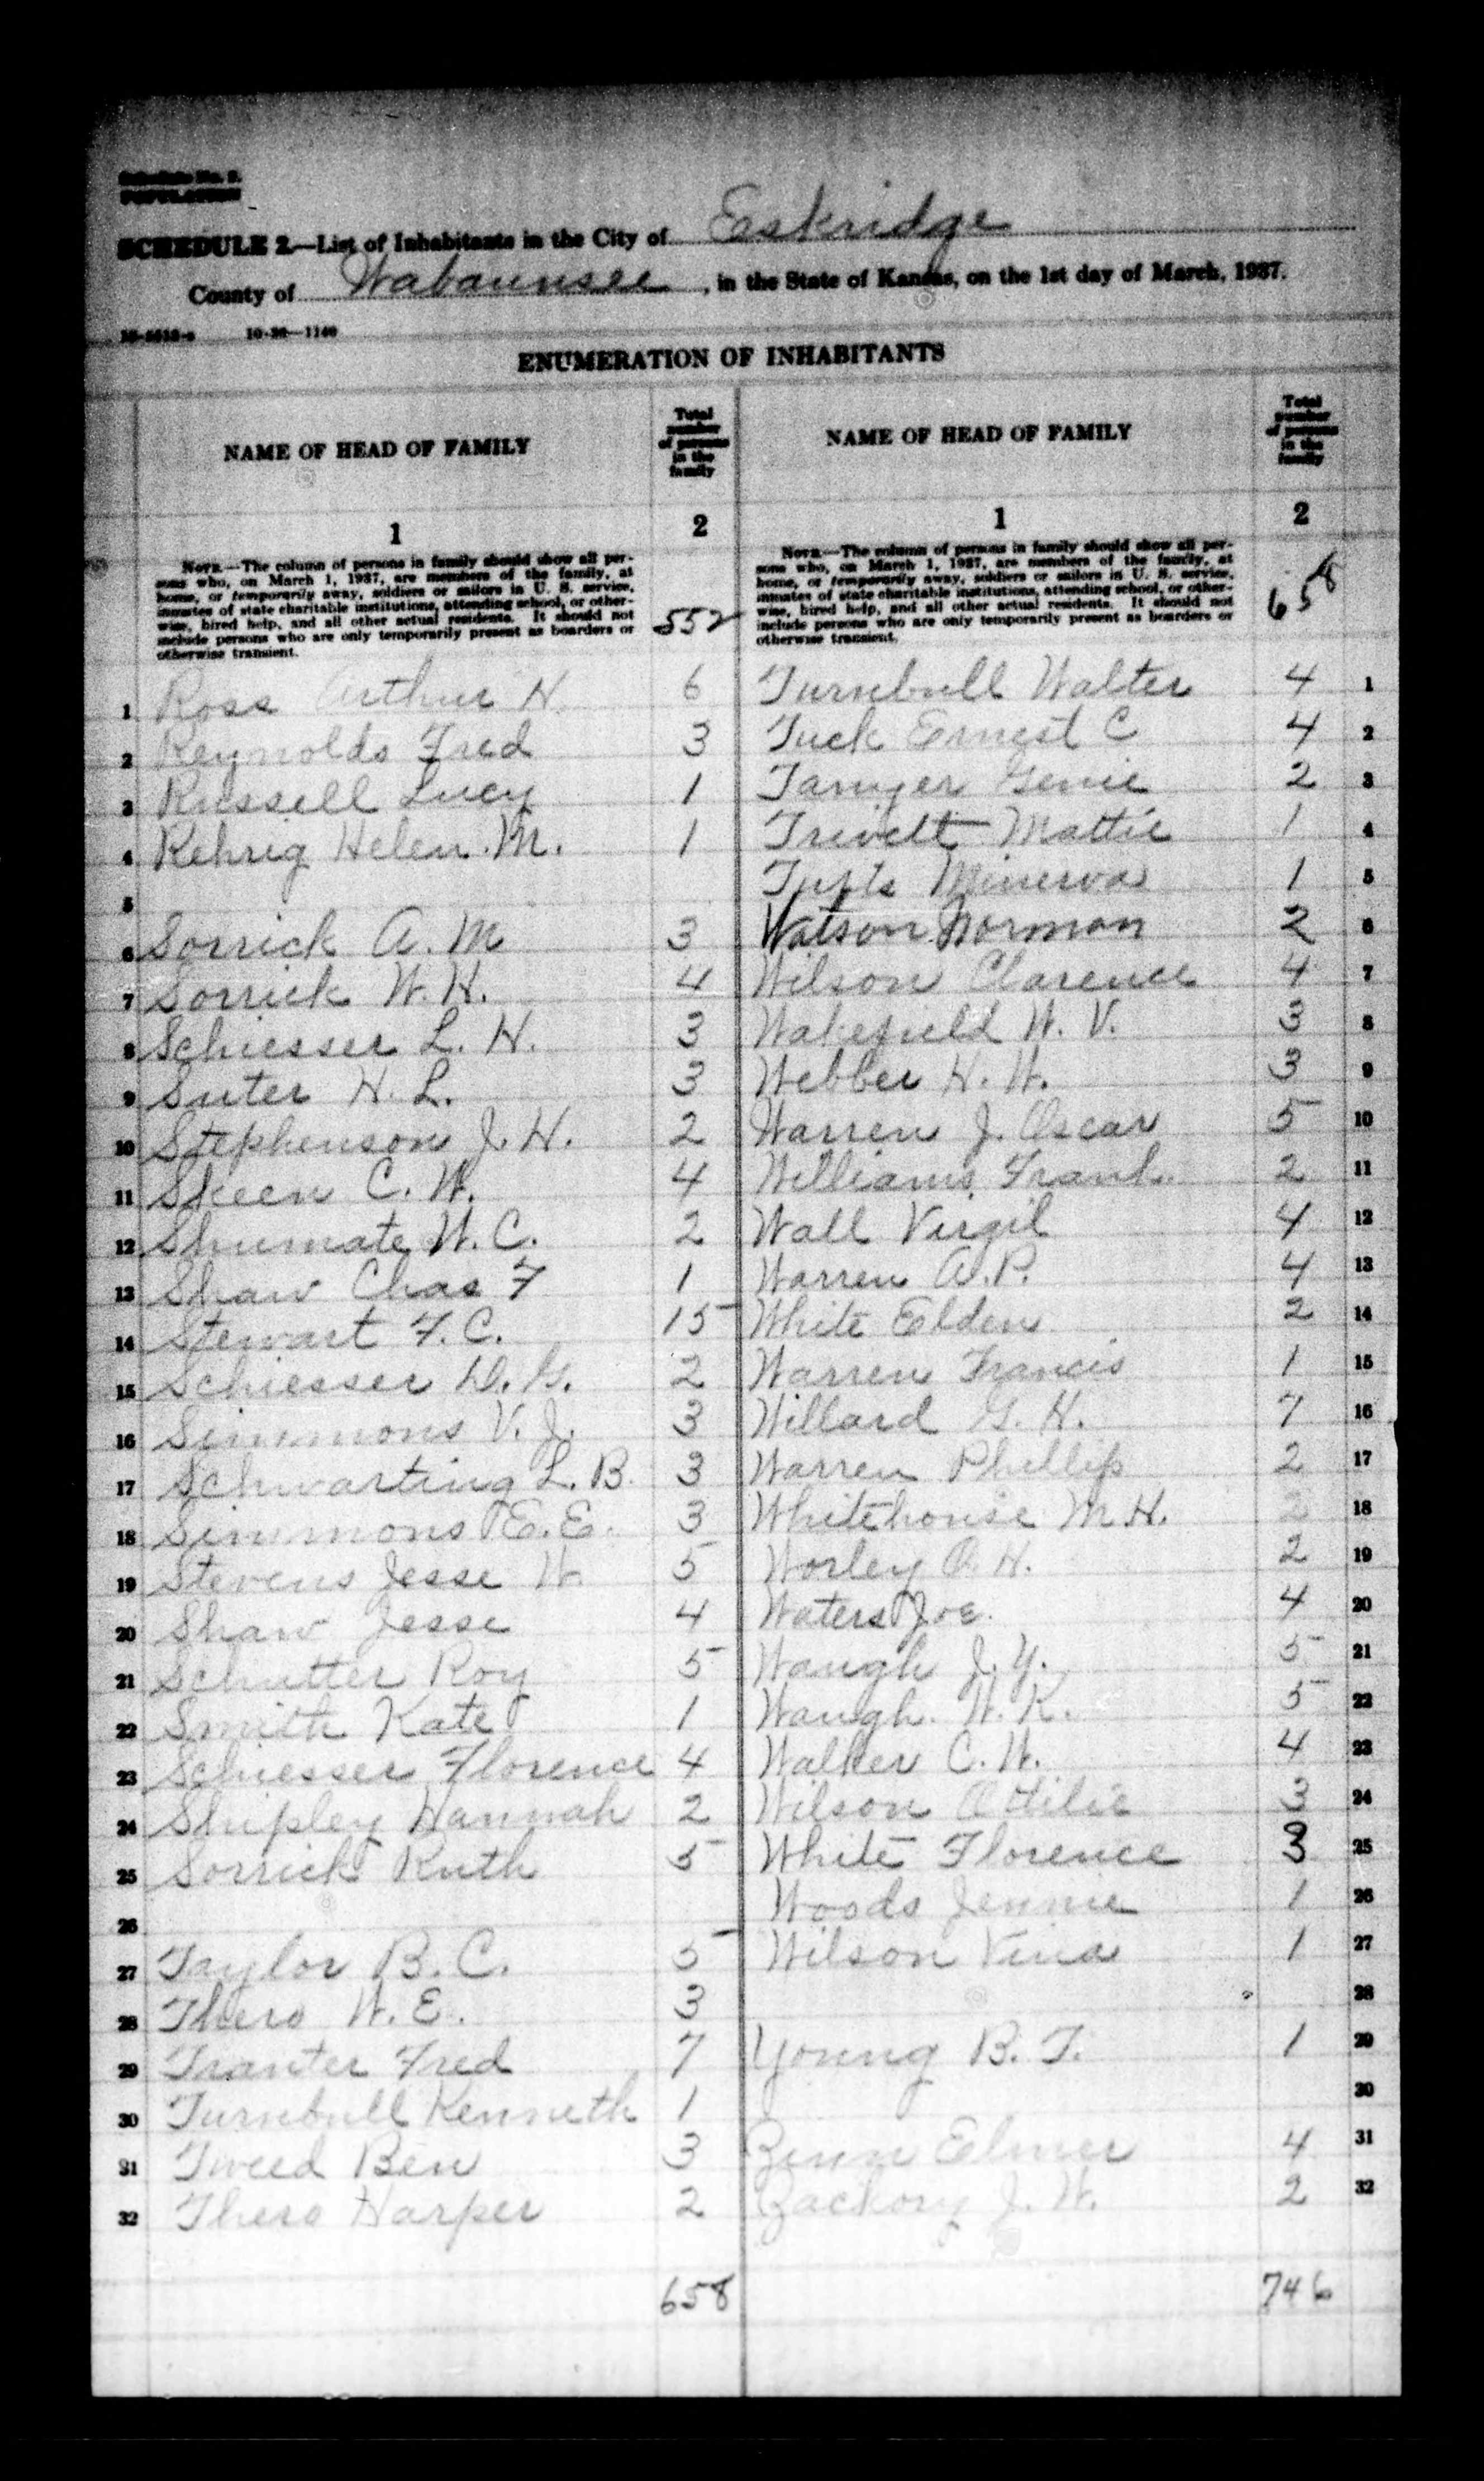 Schedule No. 2.
POPULATION
SCHEDULE 2.—List of Inhabitants in the City of Eskridge
County of Wabaunsee, in the State of Kansas, on the 1st day of March, 1937.
10-36—1140
ENUMERATION OF INHABITANTS
NAME OF HEAD OF FAMILY
Total number of persons in the family
NAME OF HEAD OF FAMILY
Total number of persons in the family
1 2 1 2
NOTE.—The column of persons in family should show all per-
sons who, on March 1, 1937, are members of the family, at
home, or temporarily away, soldiers or sailors in U. S. service,
inmates of state charitable institutions, attending school, or other-
wise, hired help, and all other actual residents. It should not
include persons who are only temporarily present as boarders or
otherwise transient.
552
NOTE.—The column of persons in family should show all per-
sons who, on March 1, 1937, are members of the family, at
home, or temporarily away, soldiers or sailors in U. S. service,
inmates of state charitable institutions, attending school, or other-
wise, hired help, and all other actual residents. It should not
include persons who are only temporarily present as boarders or
otherwise transient.
658
1 Ross Arthur H. 6
2 Reynolds Fred 3
3 Russell Lucy 1
4 Rehrig Helen M. 1
5
6 Sorrick A. M 3
7 Sorrick W. H. 4
8 Schiesser L. H. 3
9 Suter H. L. 3
10 Stephenson J. H. 2
11 Skeen C. W. 4
12 Shumate W. C. 2
13 Shaw Chas F 1
14 Stewart F. C. 15
15 Schiesser D. G. 2
16 Simmons V. J. 3
17 Schwarting L. B. 3
18 Simmons E. E. 3
19 Stevens Jesse W. 5
20 Shaw Jesse 4
21 Schutter Roy 5
22 Smith Kate 1
23 Schiesser Florence 4
24 Shipley Hannah 2
25 Sorrick Ruth 5
26
27 Taylor B. C. 5
28 Thero W. E. 3
29 Tranter Fred 7
30 Turnbull Kenneth 1
31 Tweed Ben 3
32 Thero Harper 2
658
Turnbull Walter 4 1
Tuck Ernest C 4 2
Genie 2 3
Trivett Mattie 1 4
Tufts Minerva 1 5
Watson Norman 2 6
Wilson Clarence 4 7
Wakefield W. V. 3 8
Webber H. W. 3 9
Warren J. Oscar 5 10
Williams Frank 2 11
Wall Virgil 4 12
Warren A. P. 4 13
White Elden 2 14
Warren Francis 1 15
Willard G. H. 7 16
Warren Phillip 2 17
Whitehouse M H. 2 18
Worley O. H. 2 19
Waters Joe. 4 20
Waugh J. Y. 5 21
Waugh. W. K. 5 22
Walker C. W. 4 23
Wilson Ottilie 3 24
White Florence 3 25
Woods Jennie 1 26
Wilson Vina 1 27
28
Young B. T. 1 29
30
Zinn Elmer 4 31
Zackory J. W. 2 32
746